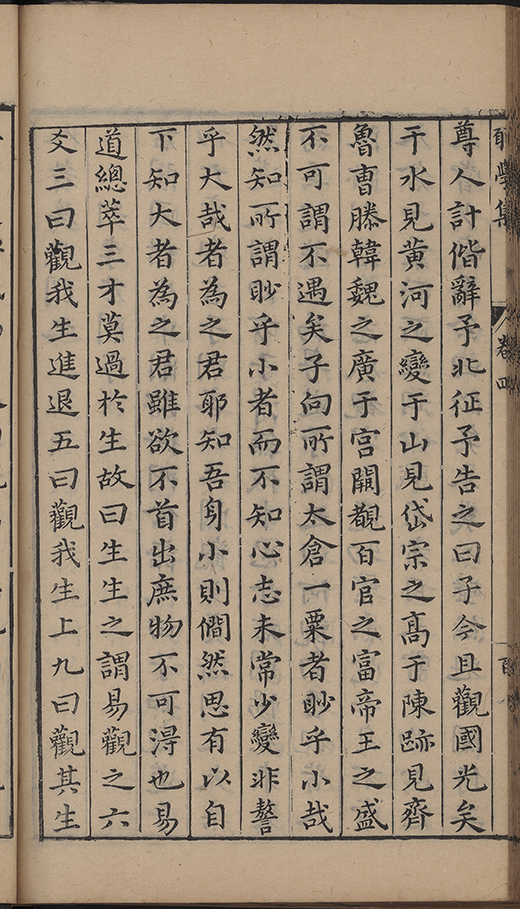 學集 卷四
尊人計偕辭予北征予告之曰子今且觀國光矣
于水見黃河之變于山見岱宗之髙于陳跡見齊
魯曹滕韓魏之廣于宮闕覩百官之富帝王之盛
不可謂不遇矣子向所謂太倉一粟者眇乎小哉
然知所謂眇乎小者而不知心志未常少變非謷
乎大哉者為之君耶知吾身小則僩然思有以自
下知大者為之君雖欲不首出庶物不可得也易
道總萃三才莫過於生故曰生生之謂易觀之六
爻三曰觀我生進退五曰觀我生上九曰觀其生